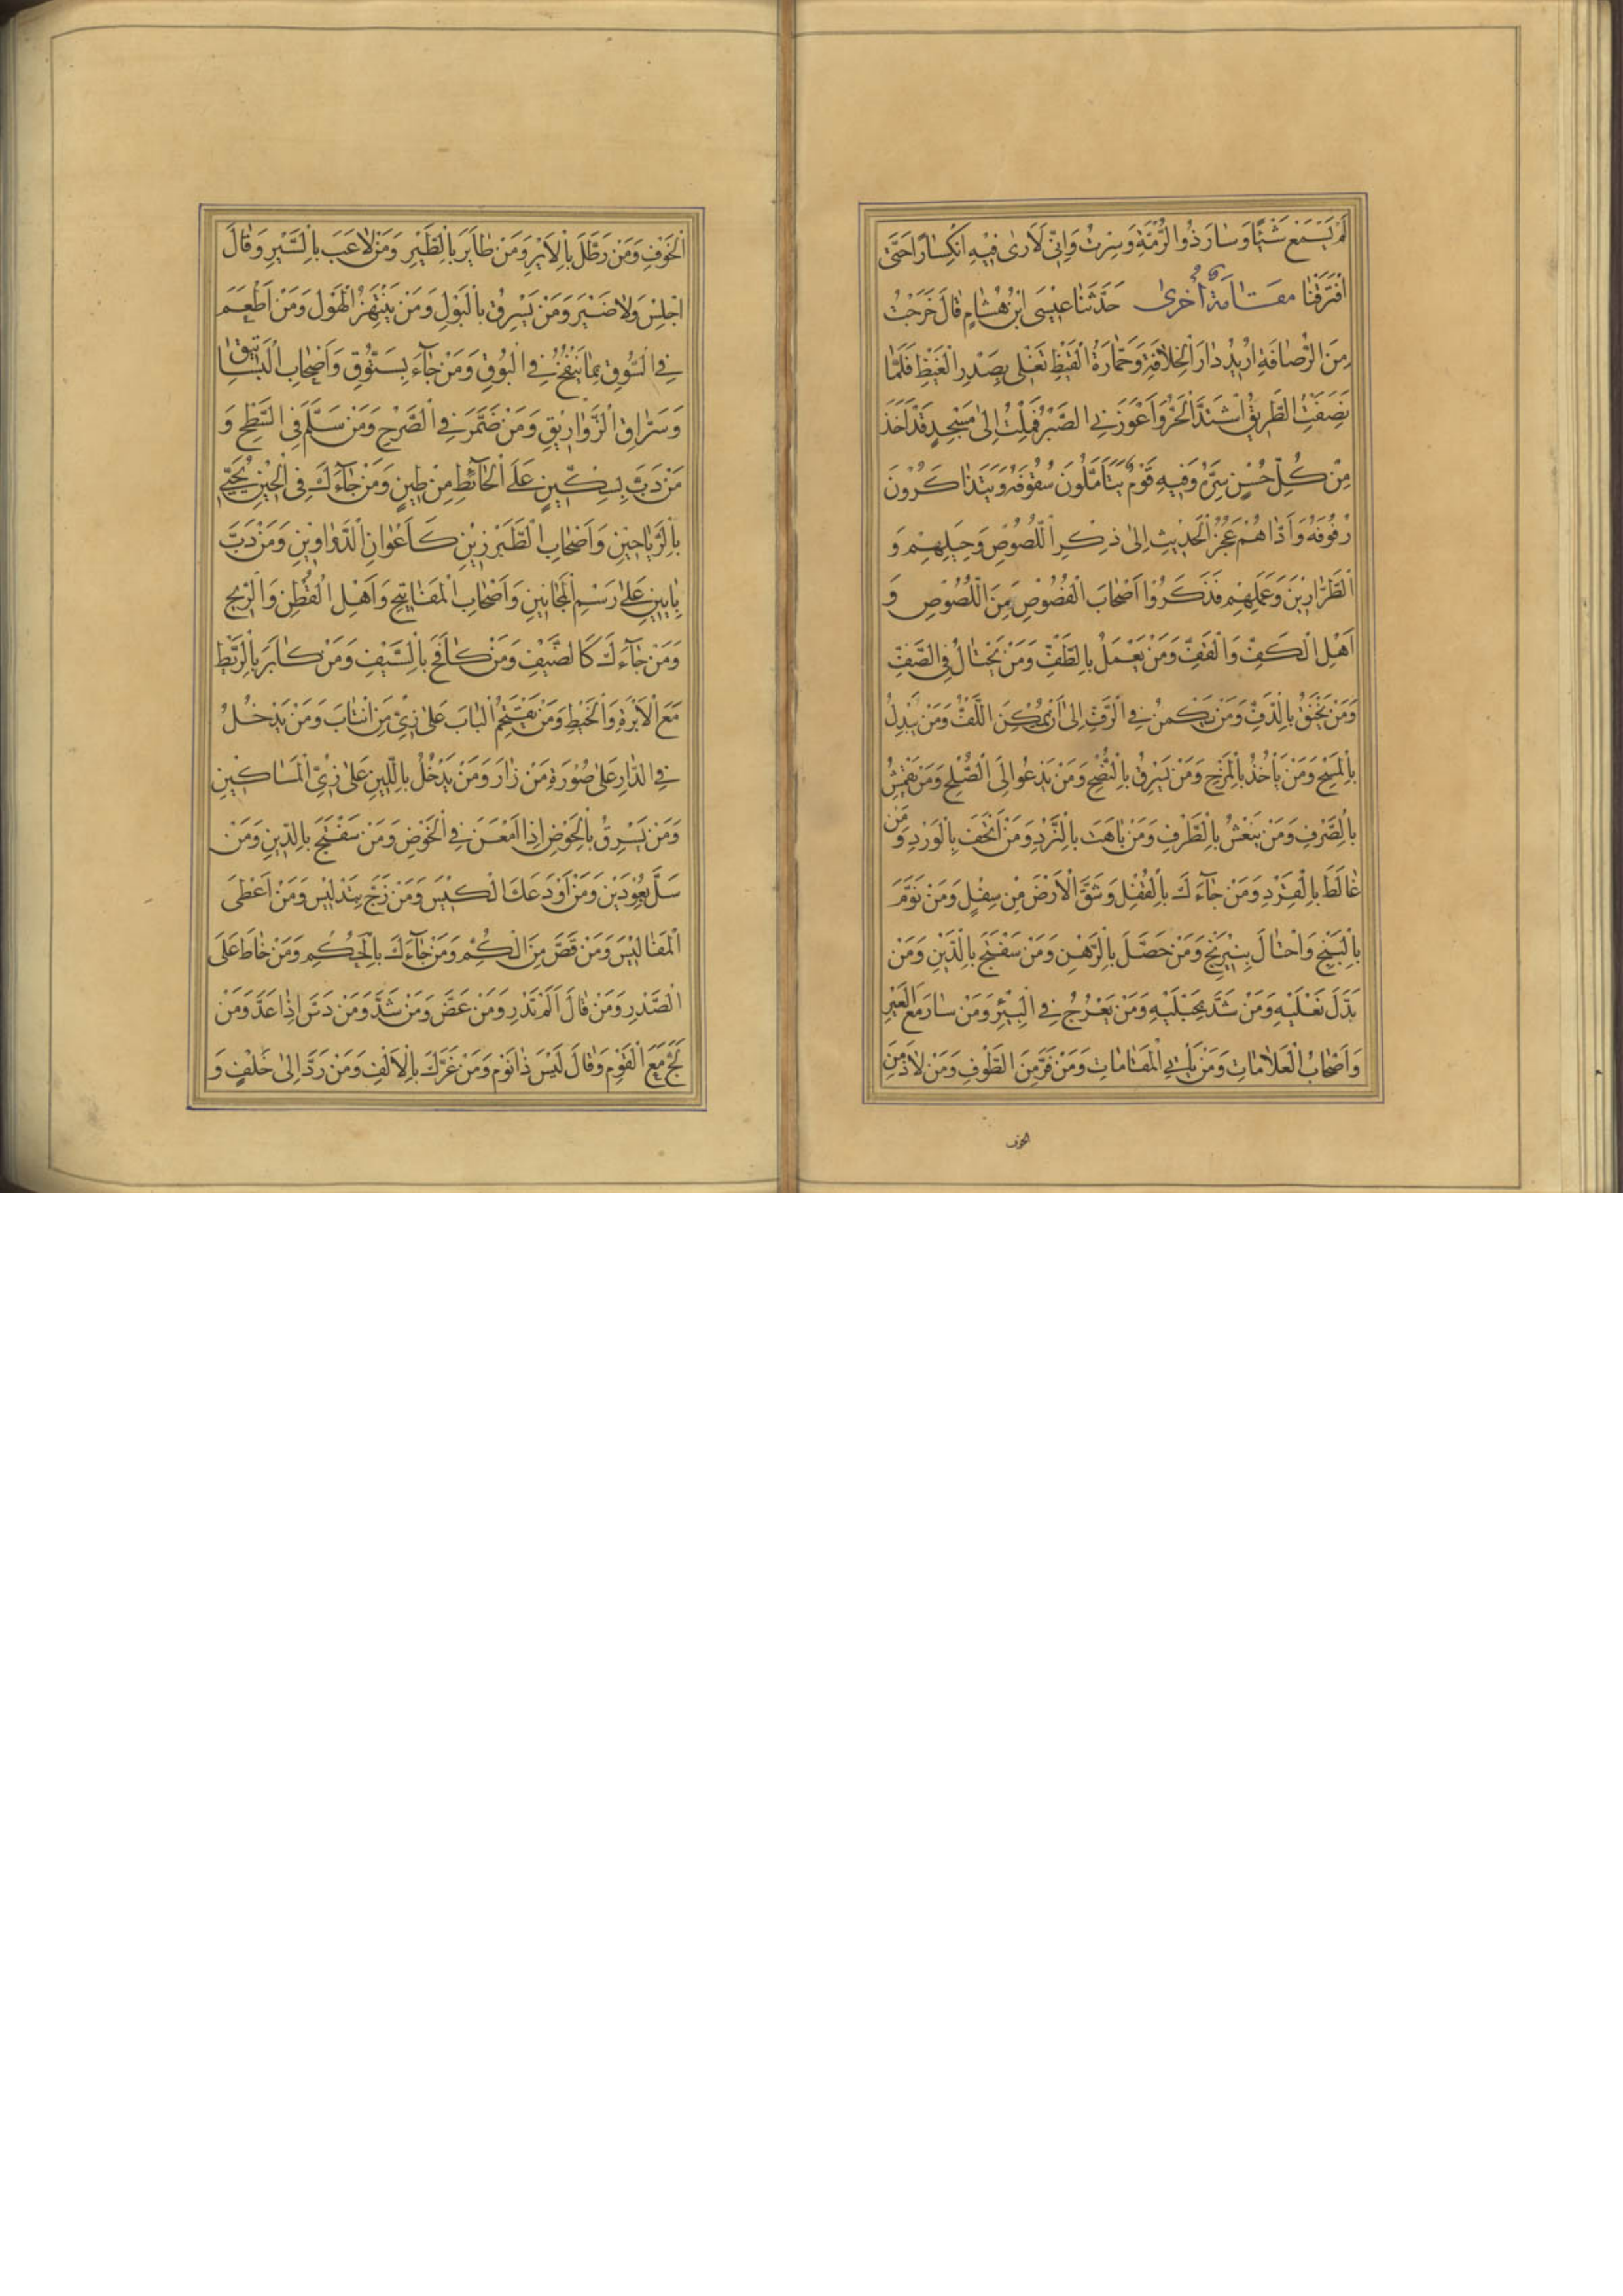 لَمْ يَسْمَعْ شَيْئًا وَسَارَ ذُو الرُّمَّةِ وَسِرْتُ وَاِنّي لَاَرىٰ فيْهِ انْكِسَارًا حَتَّى
افْتَرَقْنَا مقامة أخرى حَدَّثَنَا عيْسَى ابْنُ هُشَامٍ قَالَ خَرَجْتُ
مِنَ الرُّصَافَةِ اُريْدُ دَارَ الْخِلَافَةِ وَحَمَارَةُ الْقَيْظِ تَغْلي بِصَدْرِ الْغَيْظِ فَلَمَّا
نَصَفَتُ الطَّريْقَ اشْتَدَّ الْحَرُّ وَاَعْوَزَنِي الصَّبْرُ فَمِلْتُ اِلىٰ مَسْجِدٍ قَدْ اَخَذَ
مِنْ كُلِّ حُسْنٍ سِرَّهُ وَفيْهِ قَوْمٌ يَتَاَمَّلُونَ سُقُوفَهُ وَيَتَذَاكَرُوْنَ
وُقُوفَهُ وَاَدَّاهُمْ عَجُزُ الْحَديْثِ اِلىٰ ذِكْرِ اللُّصُوْصِ وَحِيَلِهِمْ وَ
الطَّرَّاريْنَ وَعَمَلِهِمْ فَذَكَرُوْا اَصْحَابَ الْفُصُوْصِ مِنَ اللُّصُوْصِ وَ
اَهْلَ الْكَفِّ وَالْقَفِّ وَمَنْ يَعْمَلُ بِالطَّفِّ وَمَنْ يَحْتَالُ فِي الصَّفِّ
وَمَنْ يَخْنُقُ بِالدَّفِّ وَمَنْ يَكْمُنُ فِي الرَّفِّ اِلىٰ اَنْ يُمْكِنَ اللَّفُّ وَمَنْ يُبْدِلُ
بِالْمَسْحِ وَمَنْ يَأْخُذُ بِالْمَزْحِ وَمَنْ يَسْرِقُ بِالنُّصْحِ وَمَنْ يَدْعُوا اِلَى الصُّلْحِ وَمَنْ قَمَشَ
بِالصَّرْفِ وَمَنْ يَنْعَسُ بِالطَّرْفِ وَمَنْ بَاهَتَ بِالنَّرْدِ وَمَنْ اَتْحَفَ بِالْوَرْدِ وَمَنْ
غَالَطَ بِالْقِرْدِ وَمَنْ جَآءَكَ بِالْقُفْلِ وَشَقَّ الْاَرْضَ مِنْ سِفْلٍ وَمَنْ نَوَّمَ
بِالْبَنْجِ وَاحْتَالَ بِنيْرَنْجٍ وَمَنْ حَصَّلَ بِالرَّهْنِ وَمَنْ سَفْتَجَ بِالدَّيْنِ وَمَنْ
بَدَّلَ نَعْلَيْهِ وَمَنْ شَدَّ بِحَبْلَيْهِ وَمَنْ يَعْرُجُ فِي الْبِئْرِ وَمَنْ سَارَ مَعَ الْعيْرِ
وَاَصْحَابُ الْعَلَامَاتِ وَمَنْ يَأْتِي الْمَقَامَاتِ وَمَنْ فَرَّ مِنَ الطَّوْفِ وَمَنْ لَاذَ مِنَ
الخوف
الْخَوْفِ وَمَنْ رَطَّلَ بِالْاَيْرِ وَمَنْ طَايَرَ بِالطَّيْرِ وَمَنْ لَاعَبَ بِالسَّيْرِ وَقَالَ
اجْلِسْ وَلَا ضَيْرَ وَمَنْ يَسْرِقُ بِالْبَوْلِ وَمَنْ يَنْتَهِزُ الْهَوْلَ وَمَنْ اَطْعَمَ
فِي السُّوْقِ بِمَا يَنْفُخُ فِي الْبُوْقِ وَمَنْ جَآءَ بِبَسْتُوْقِ وَاَصْحَابِ الْبَسَاتيْقِ
وَسَرَّاقِ الرَّوَاريْقِ وَمَنْ ضَمَّرَ فِي الصَّرْحِ وَمَنْ سَلَّمَ فِي السَّطْحِ وَ
مَنْ دَبَّ بِسِكّيْنٍ عَلَى الْحَآئِطِ مِنْ طيْنٍ وَمَنْ جَآءَكَ فِي الْحيْنِ يُحَيّي
بِالرَّيَاحيْنِ وَاَصْحَابِ الطَّبَرْزيْنِ كَاَعْوَانِ الدَّوَاويْنِ وَمَنْ دَبَّ
بِاَنيْنٍ عَلىٰ رَسْمِ الْمَجَانيْنِ وَاَصْحَابِ الْمَفَاتيْحِ وَاَهْلِ الْقُطْنِ وَالرّيْحِ
وَمَنْ جَآءَكَ كَالضَّيْفِ وَمَنْ كَافَحَ بِالسَّيْفِ وَمَنْ كَابَرَ بِالرَّيْطِ
مَعَ الْاِبْرَةِ وَالْخَيْطِ وَمَنْ يَقْتَحِمُ الْبَابَ عَلىٰ زِيِّ مَنِ انْتَابَ وَمَنْ يَدْخُلُ
فِي الدَّارِ عَلىٰ صُوْرَةِ مَنْ زَارَ وَمَنْ يَدْخُلُ بِاللّيْنِ عَلىٰ زِيِّ الْمَسَاكيْنِ
وَمَنْ يَسْرِقُ بِالْحَوْضِ اِذَا اَمْعَنَ فِي الْخَوْضِ وَمَنْ سَفْتَجَ بِالدَّيْنِ وَمَنْ
سَلَّ بِعُوْدَيْنِ وَمَنْ اَوْدَعَكَ الْكيْسَ وَمَنْ زَجَّ بِتَدْليْسٍ وَمَنْ اَعْطَى
الْمَفَاليْسَ وَمَنْ قَصَّ مِنَ الْكُمِّ وَمَنْ جَآءَكَ بِالْحُكْمِ وَمَنْ خَاطَ عَلَى
الصَّدْرِ وَمَنْ قَالَ اَلَمْ تَدْرِ وَمَنْ عَضَّ وَمَنْ شَدَّ وَمَنْ دَسَّ اِذَا عَدَّ وَمَنْ
لَجَّ مَعَ الْقَوْمِ وَقَالَ لَيْسَ ذَا نَوْمٍ وَمَنْ غَرَّكَ بِالْاَلْفِ وَمَنْ رَدَّ اِلىٰ خَلْفٍ وَ